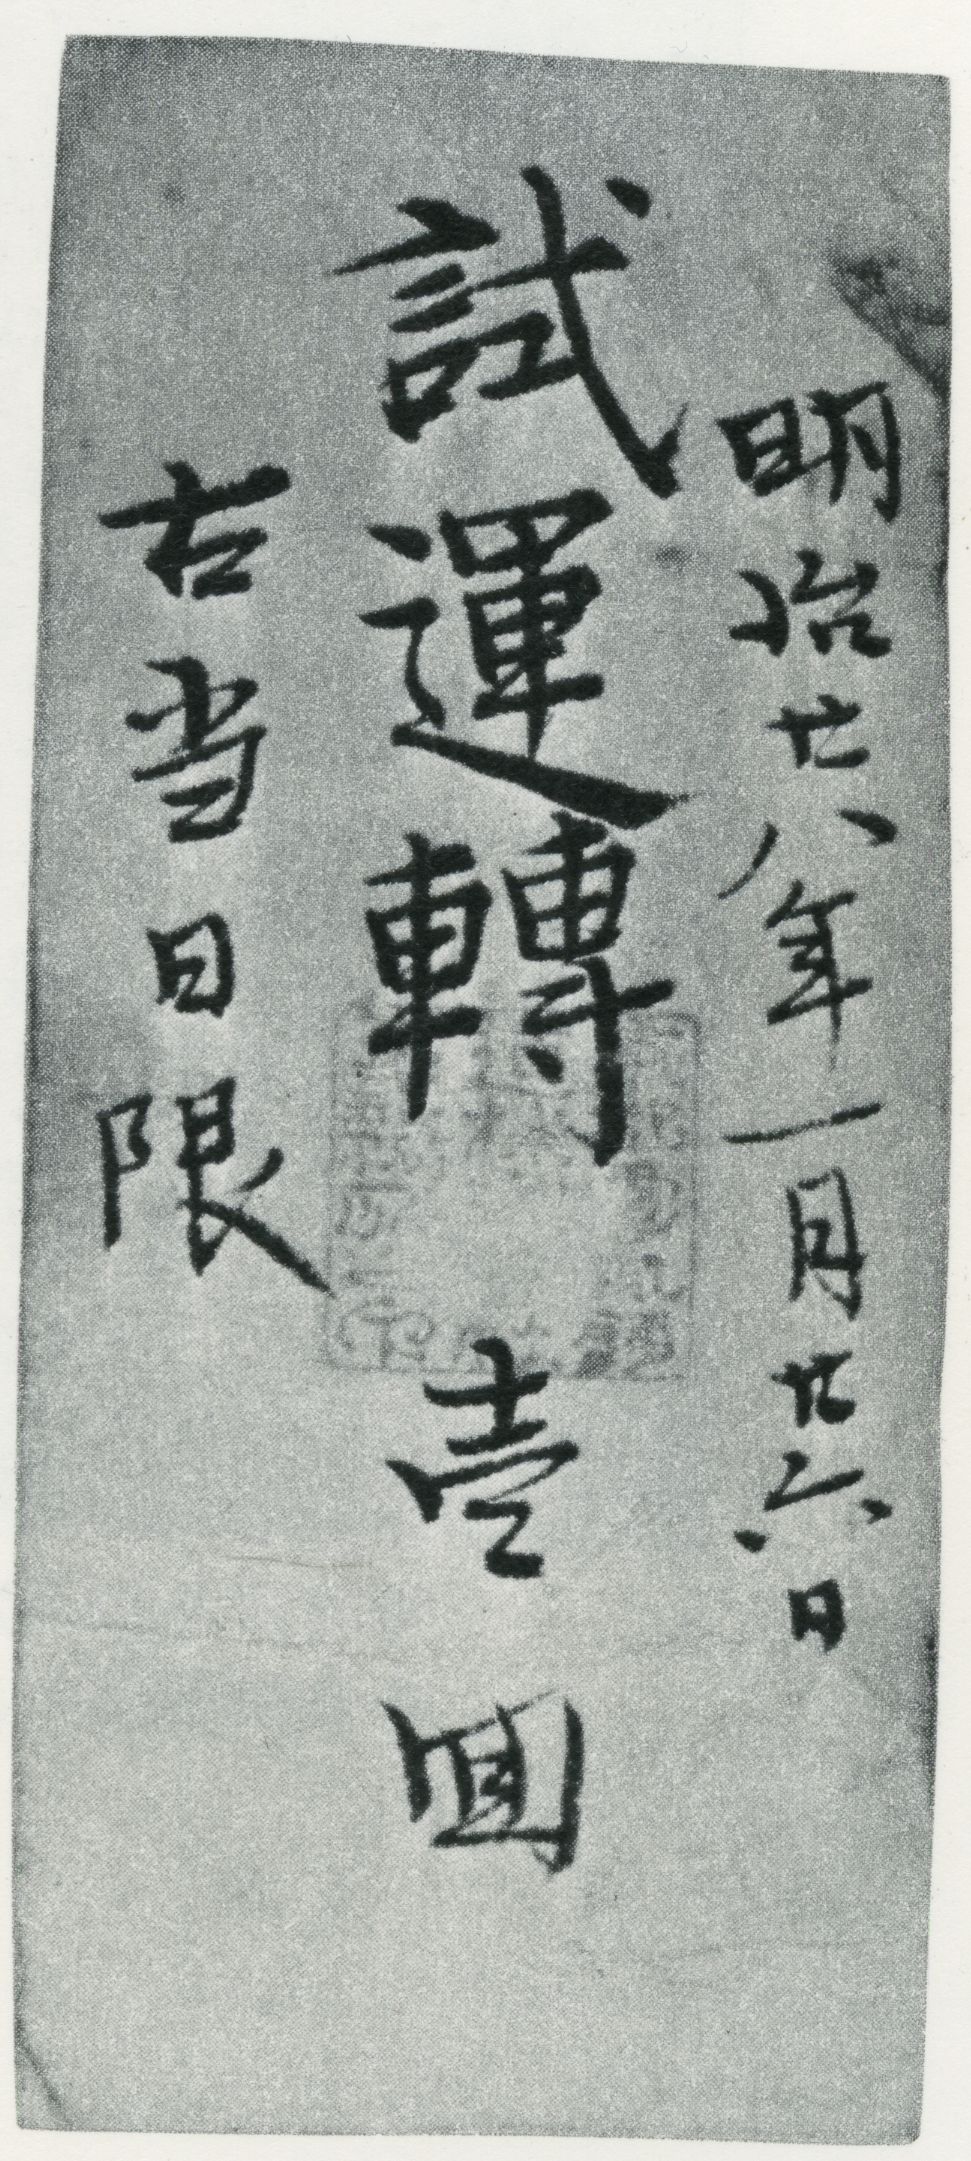 明治廿八年一月廿六日
試運轉壱囬
右当日限